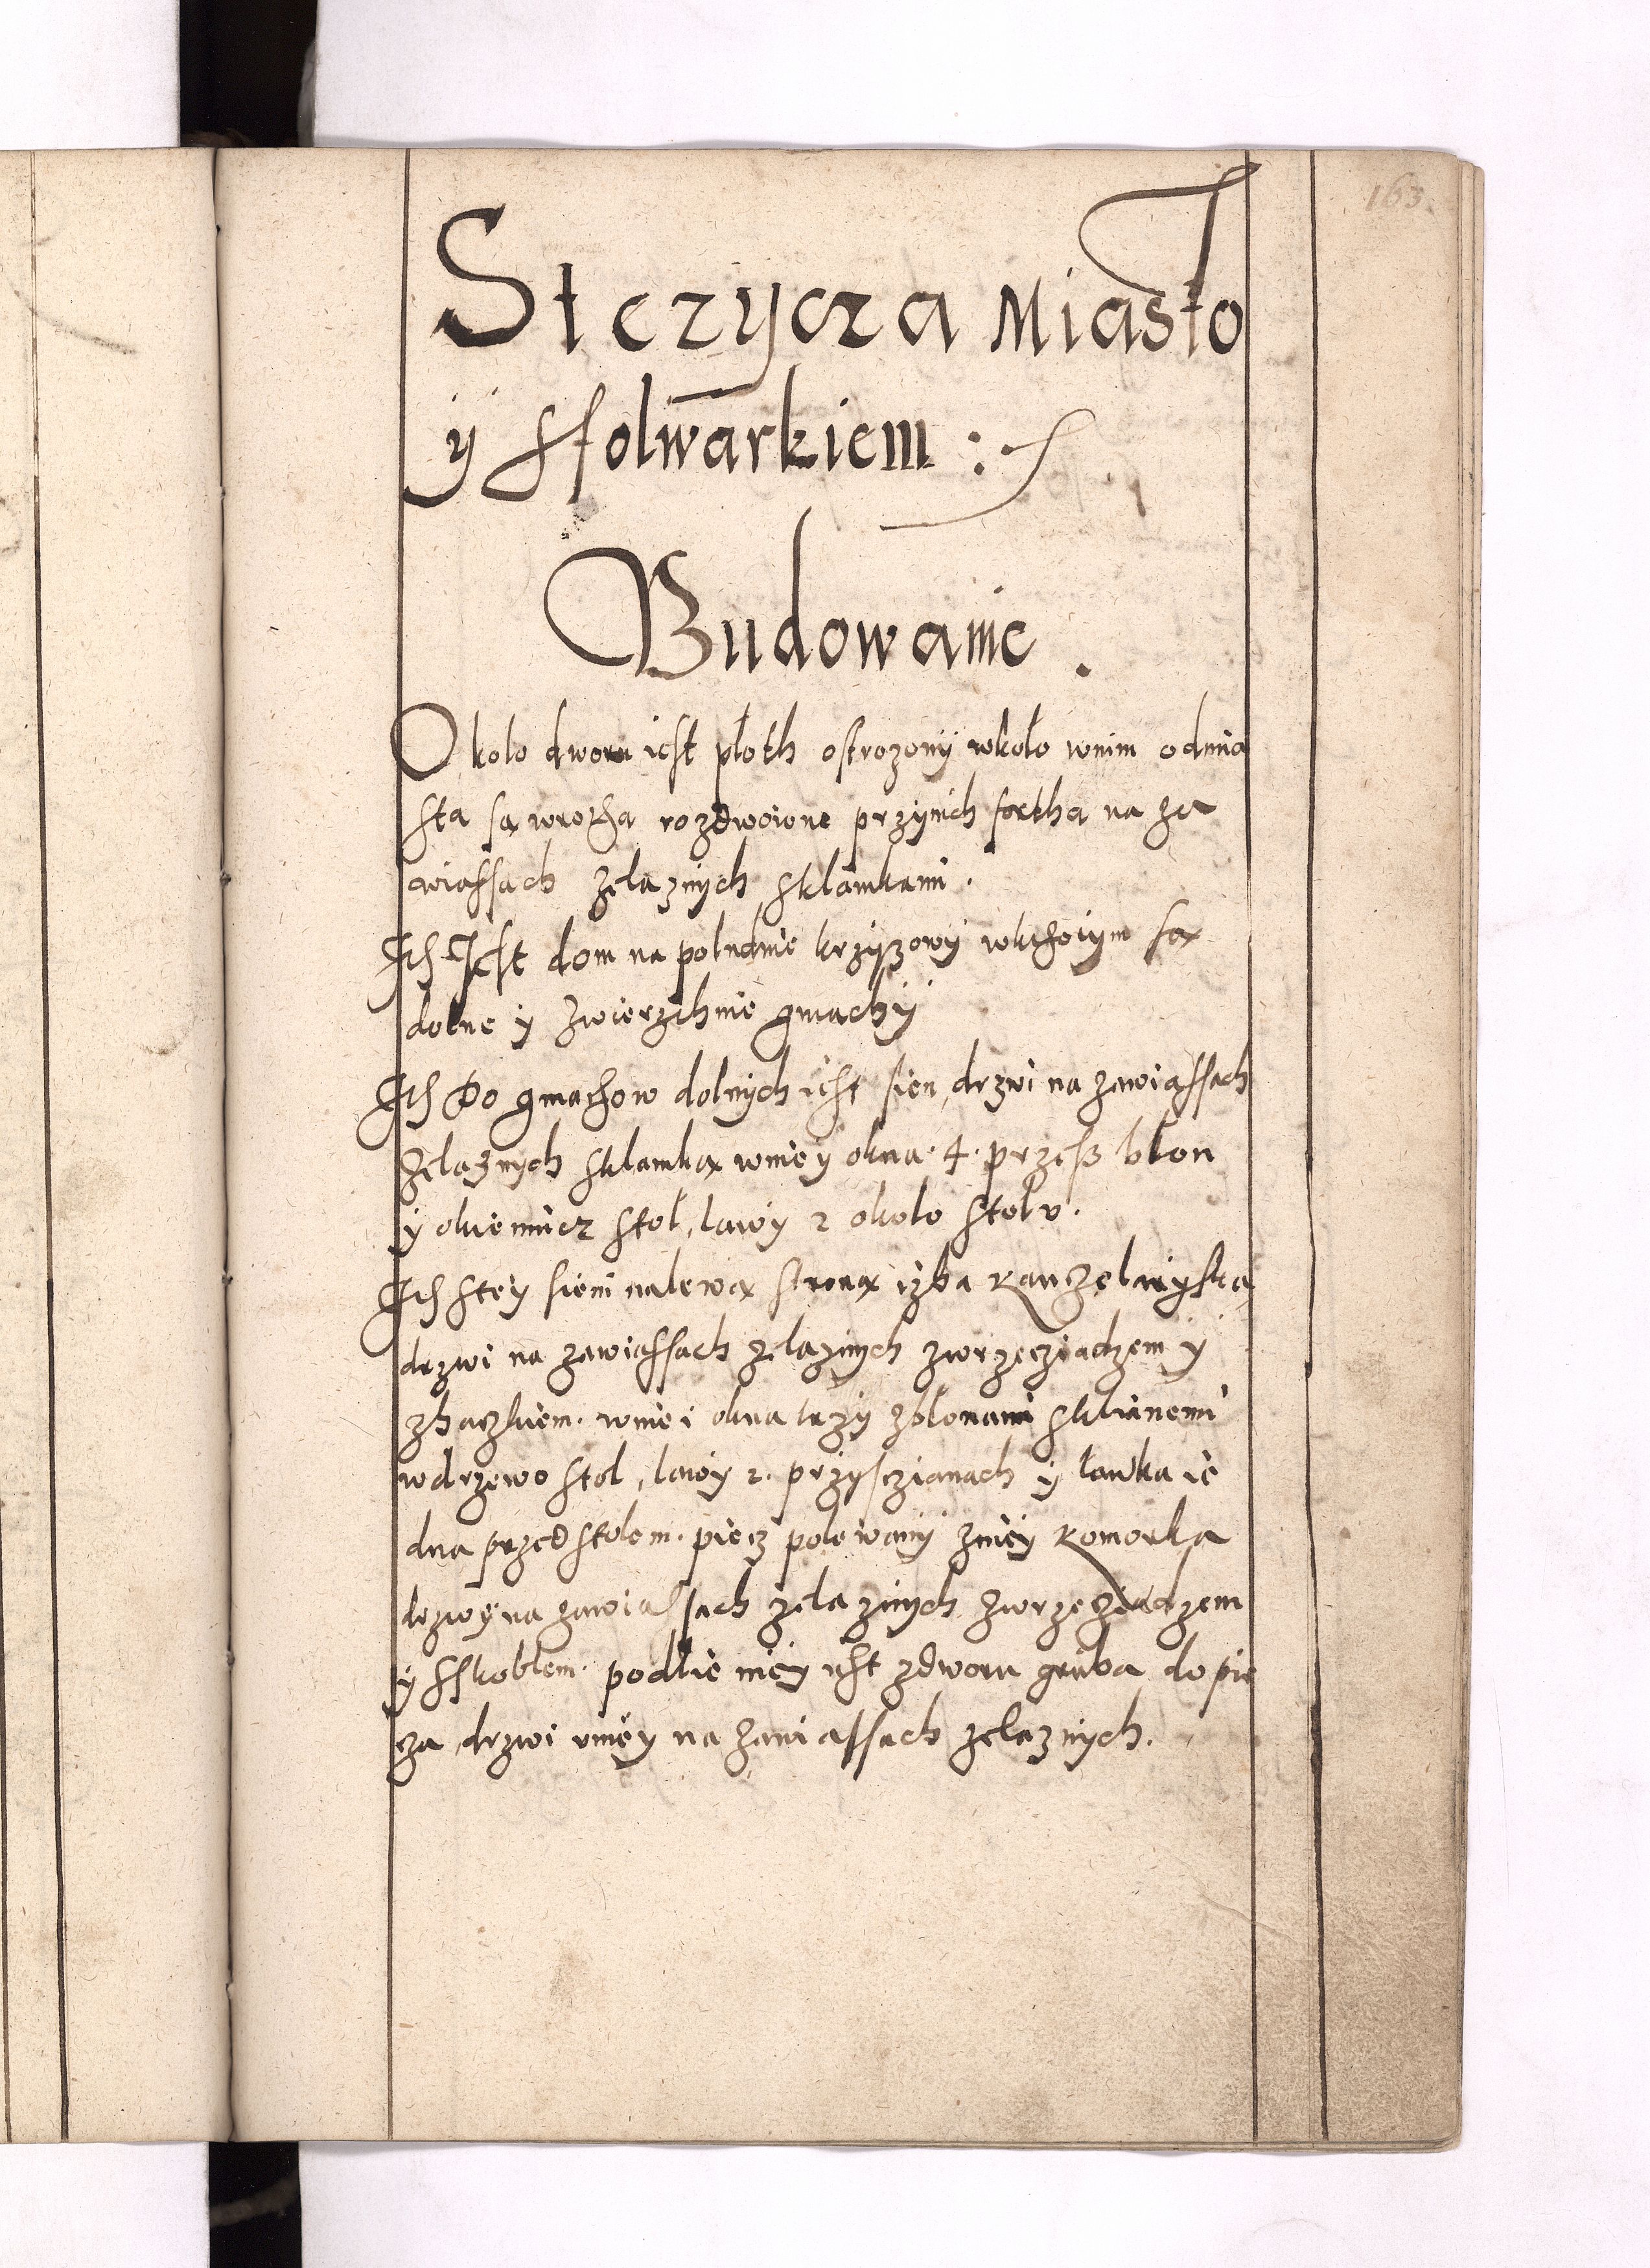 163.
Stczycza Miasto
y Ffolwarkiem :
Budowanie .
Okolo dworu iest płoth ostrozony wkoło wnim odmia
sta są wrotha rozdwoione przynich fortha na za
wiassach żelaznych sklamkami .
Ith Jest dom na poludnie krzyżowy wkthorym są
dolne y zwierzchnie gmachy
Ith Do gmachow dolnych iest sien, drzwi na zawiassach
żelaznych sklamką wniey okna · 4 · przeß błon
y okiennicz stoł, lawy 2 okolo stolv .
Ith stey sieni nalewą stroną izba kanczelaryska,
drzwi na zawiassach zelaznych zwrzecziadzem y
zhaczkiem . wniei okna trzy zblonami sklianemi
wdrzewo stol, lawy 2 . przysczianach y ławka ie
dna przed stolem . piecz polewany zniey komorka
drzwy na zawiassach zelaznych zwrzecziadzem
y sskoblem . podlie niey iest zdworu gruba do pie
cza, drzwi vniey na zawiassach zelaznych .